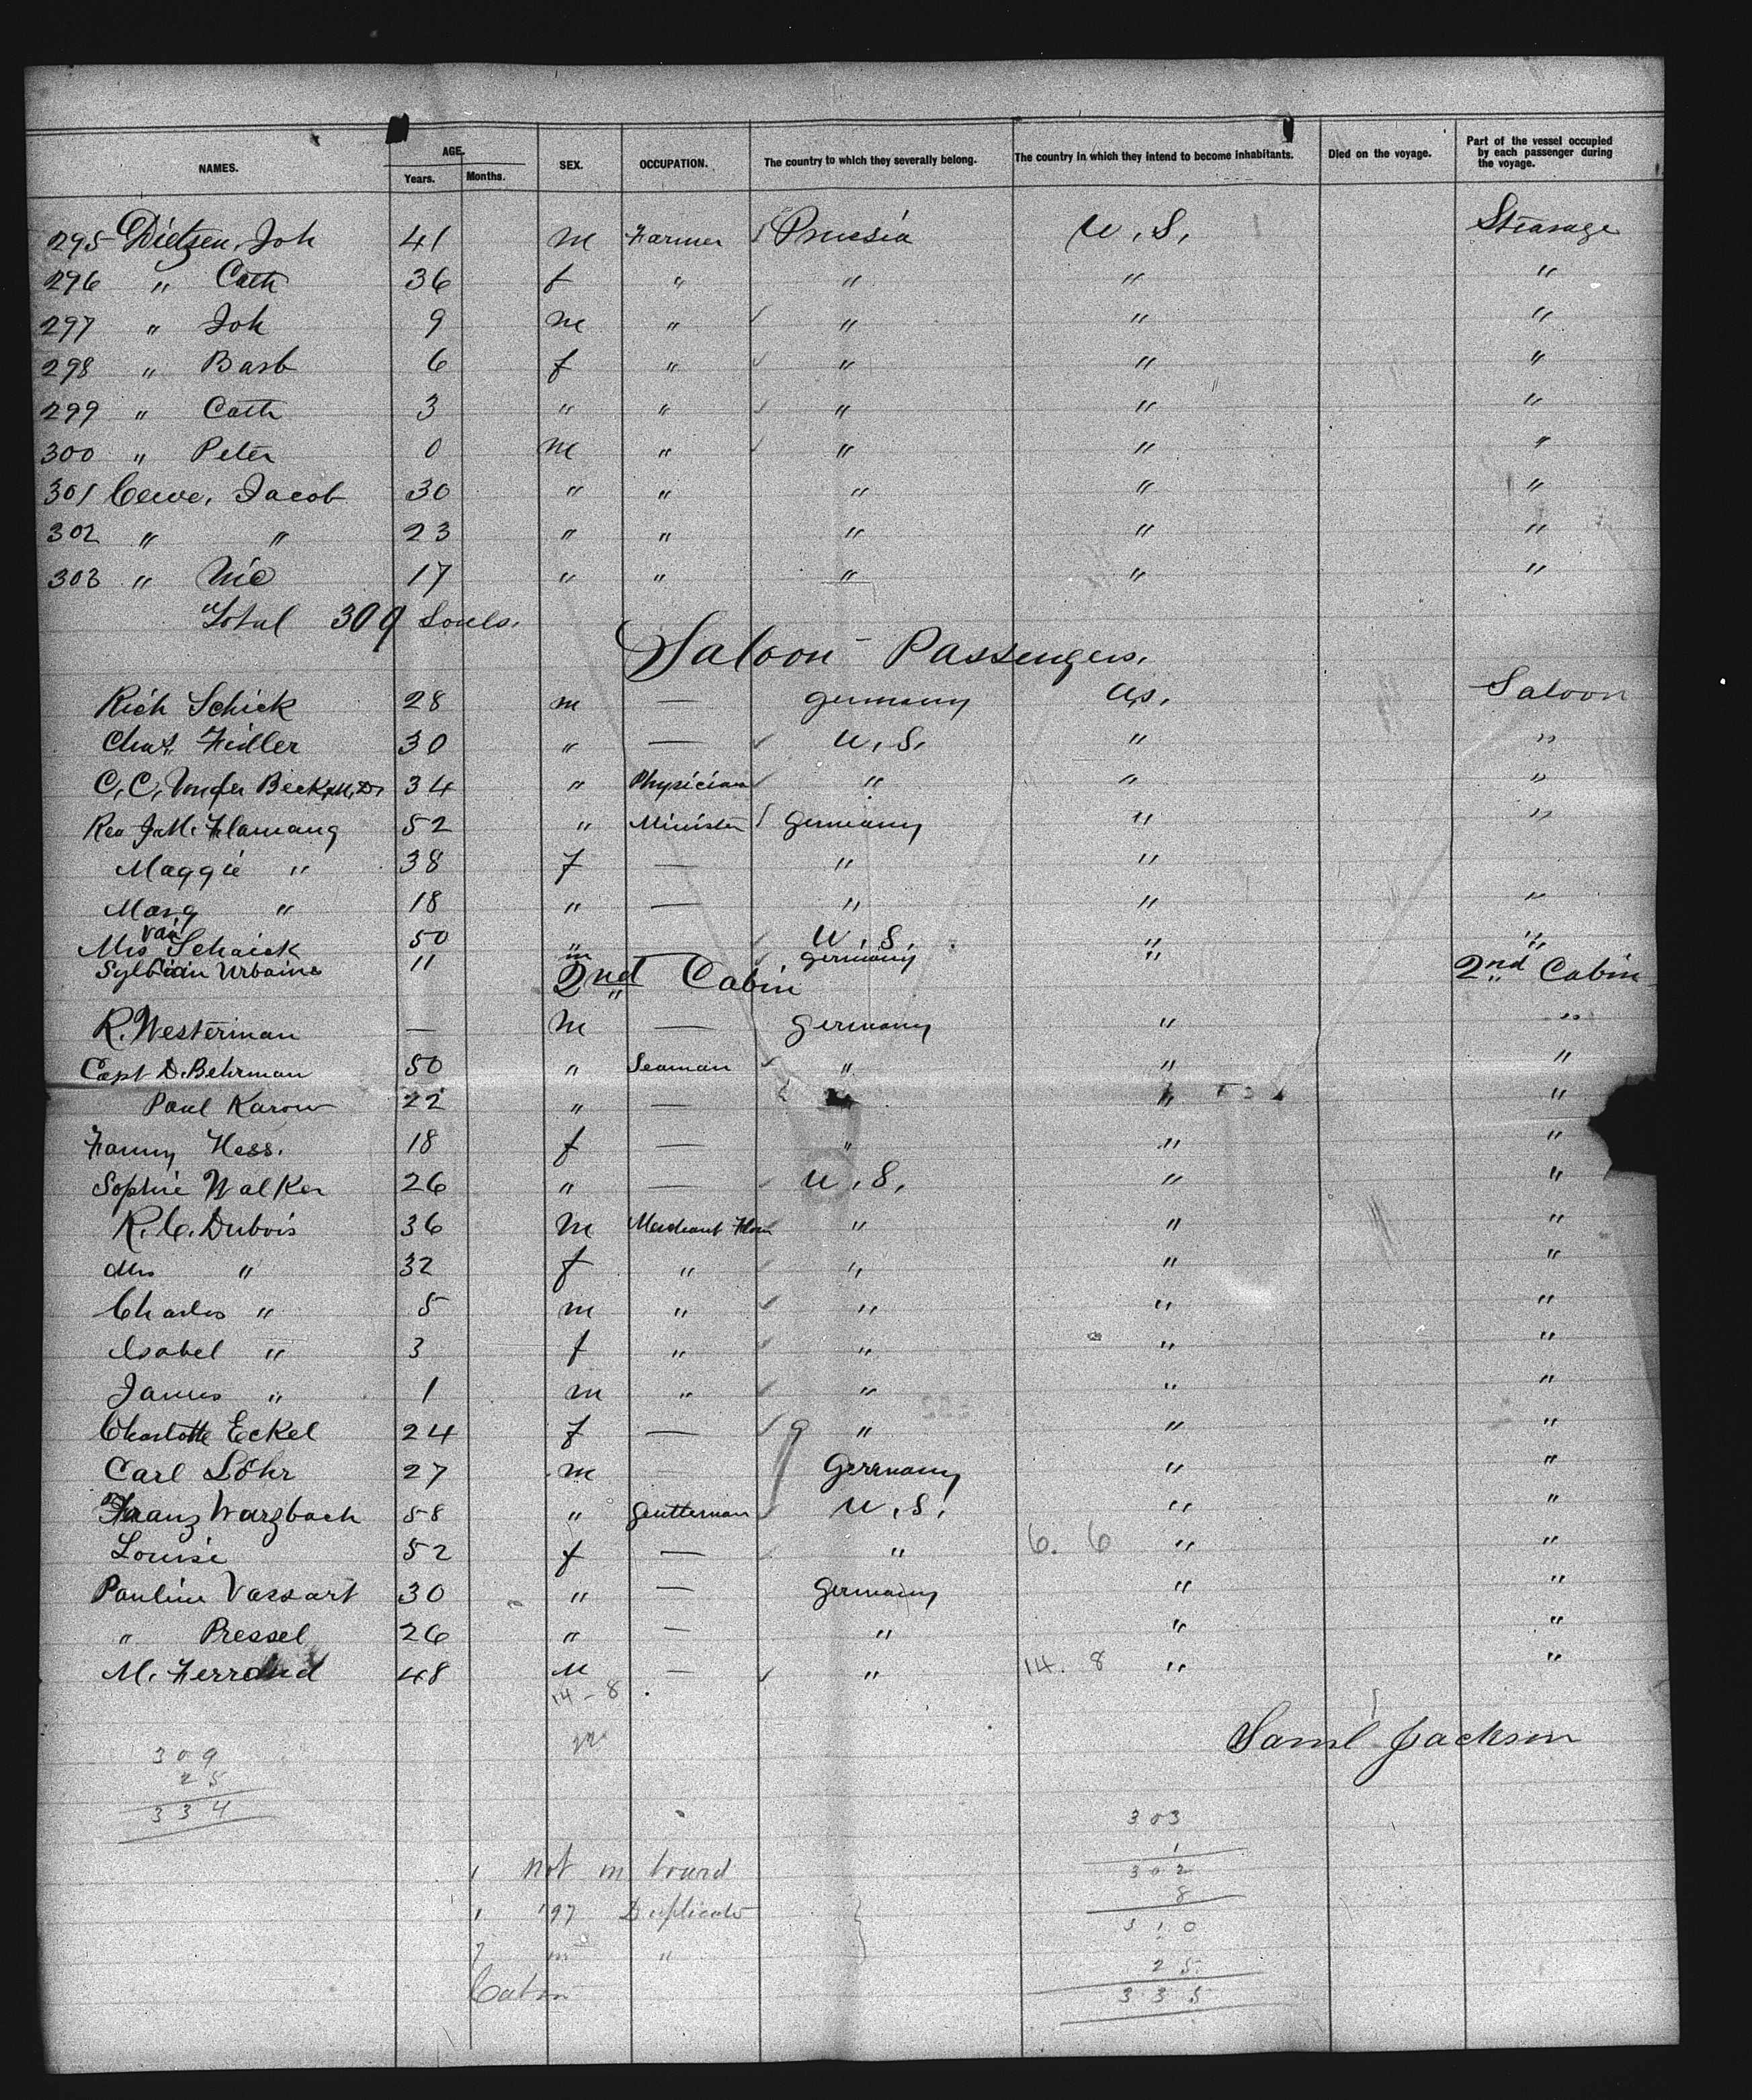 NAMES. AGE. Years. Months. SEX. OCCUPATION. The country to which they severally belong. The country in which they intend to become inhabitants. Died on the voyage. Part of the vessel occupied by each passenger during the voyage.
295 Dietzen, Joh 41 m Farmer Prussia U.S. Stearage
296 " Cath 36 f " " " "
297 " Joh 9 m " " " "
298 " Barb 6 f " " " "
299 " Cath 3 " " " " "
300 " Peter 0 m " " " "
301 Jacob 30 " " " " "
302 " " 23 " " " " "
303 " Nic 17 " " " " "
Total 309 Souls.
Saloon Passengers.
Rich Schick 28 m — Germany U.S. Saloon
Chas. Fidler 30 " — U.S. " "
C. C. Vander Beck, M.D. 34 " Physician " " "
Rev J. M. Flamang 52 " Minister Germany " "
Maggie " 38 f — " "
Marg " 18 " — " " "
Mrs van Schaick 50 " U.S. " "
Urbaine 11 m Germany " 2nd Cabin
2nd Cabin
R. Westerman — m — Germany " "
Capt D. Behrman 50 " Seaman " " "
Paul Karow 22 " — " "
Fanny Hess. 18 f — " " "
Sophie Walker 26 " — U.S. " "
R. C. Dubois 36 m Merchant " " "
Mrs " 32 f " " " "
Charles " 5 m " " " "
Isabel " 3 f " " " "
James " 1 m " " " "
Charlotte Eckel 24 f — 9 " " "
Carl Löhr 27 m — Germany " "
Franz Warzbach 58 " Gentleman U.S. " "
Louise 52 f — " 6. 6 " "
Pauline Vassart 30 " — Germany " "
" Pressel 26 " — " " "
M. Ferrand 48 M — " 14. 8 " "
14 - 8
Saml Jackson
309
25
334
303
1
302
8
310
25
335
1 not on board
1 '97 Duplicate
7 "
Cabin